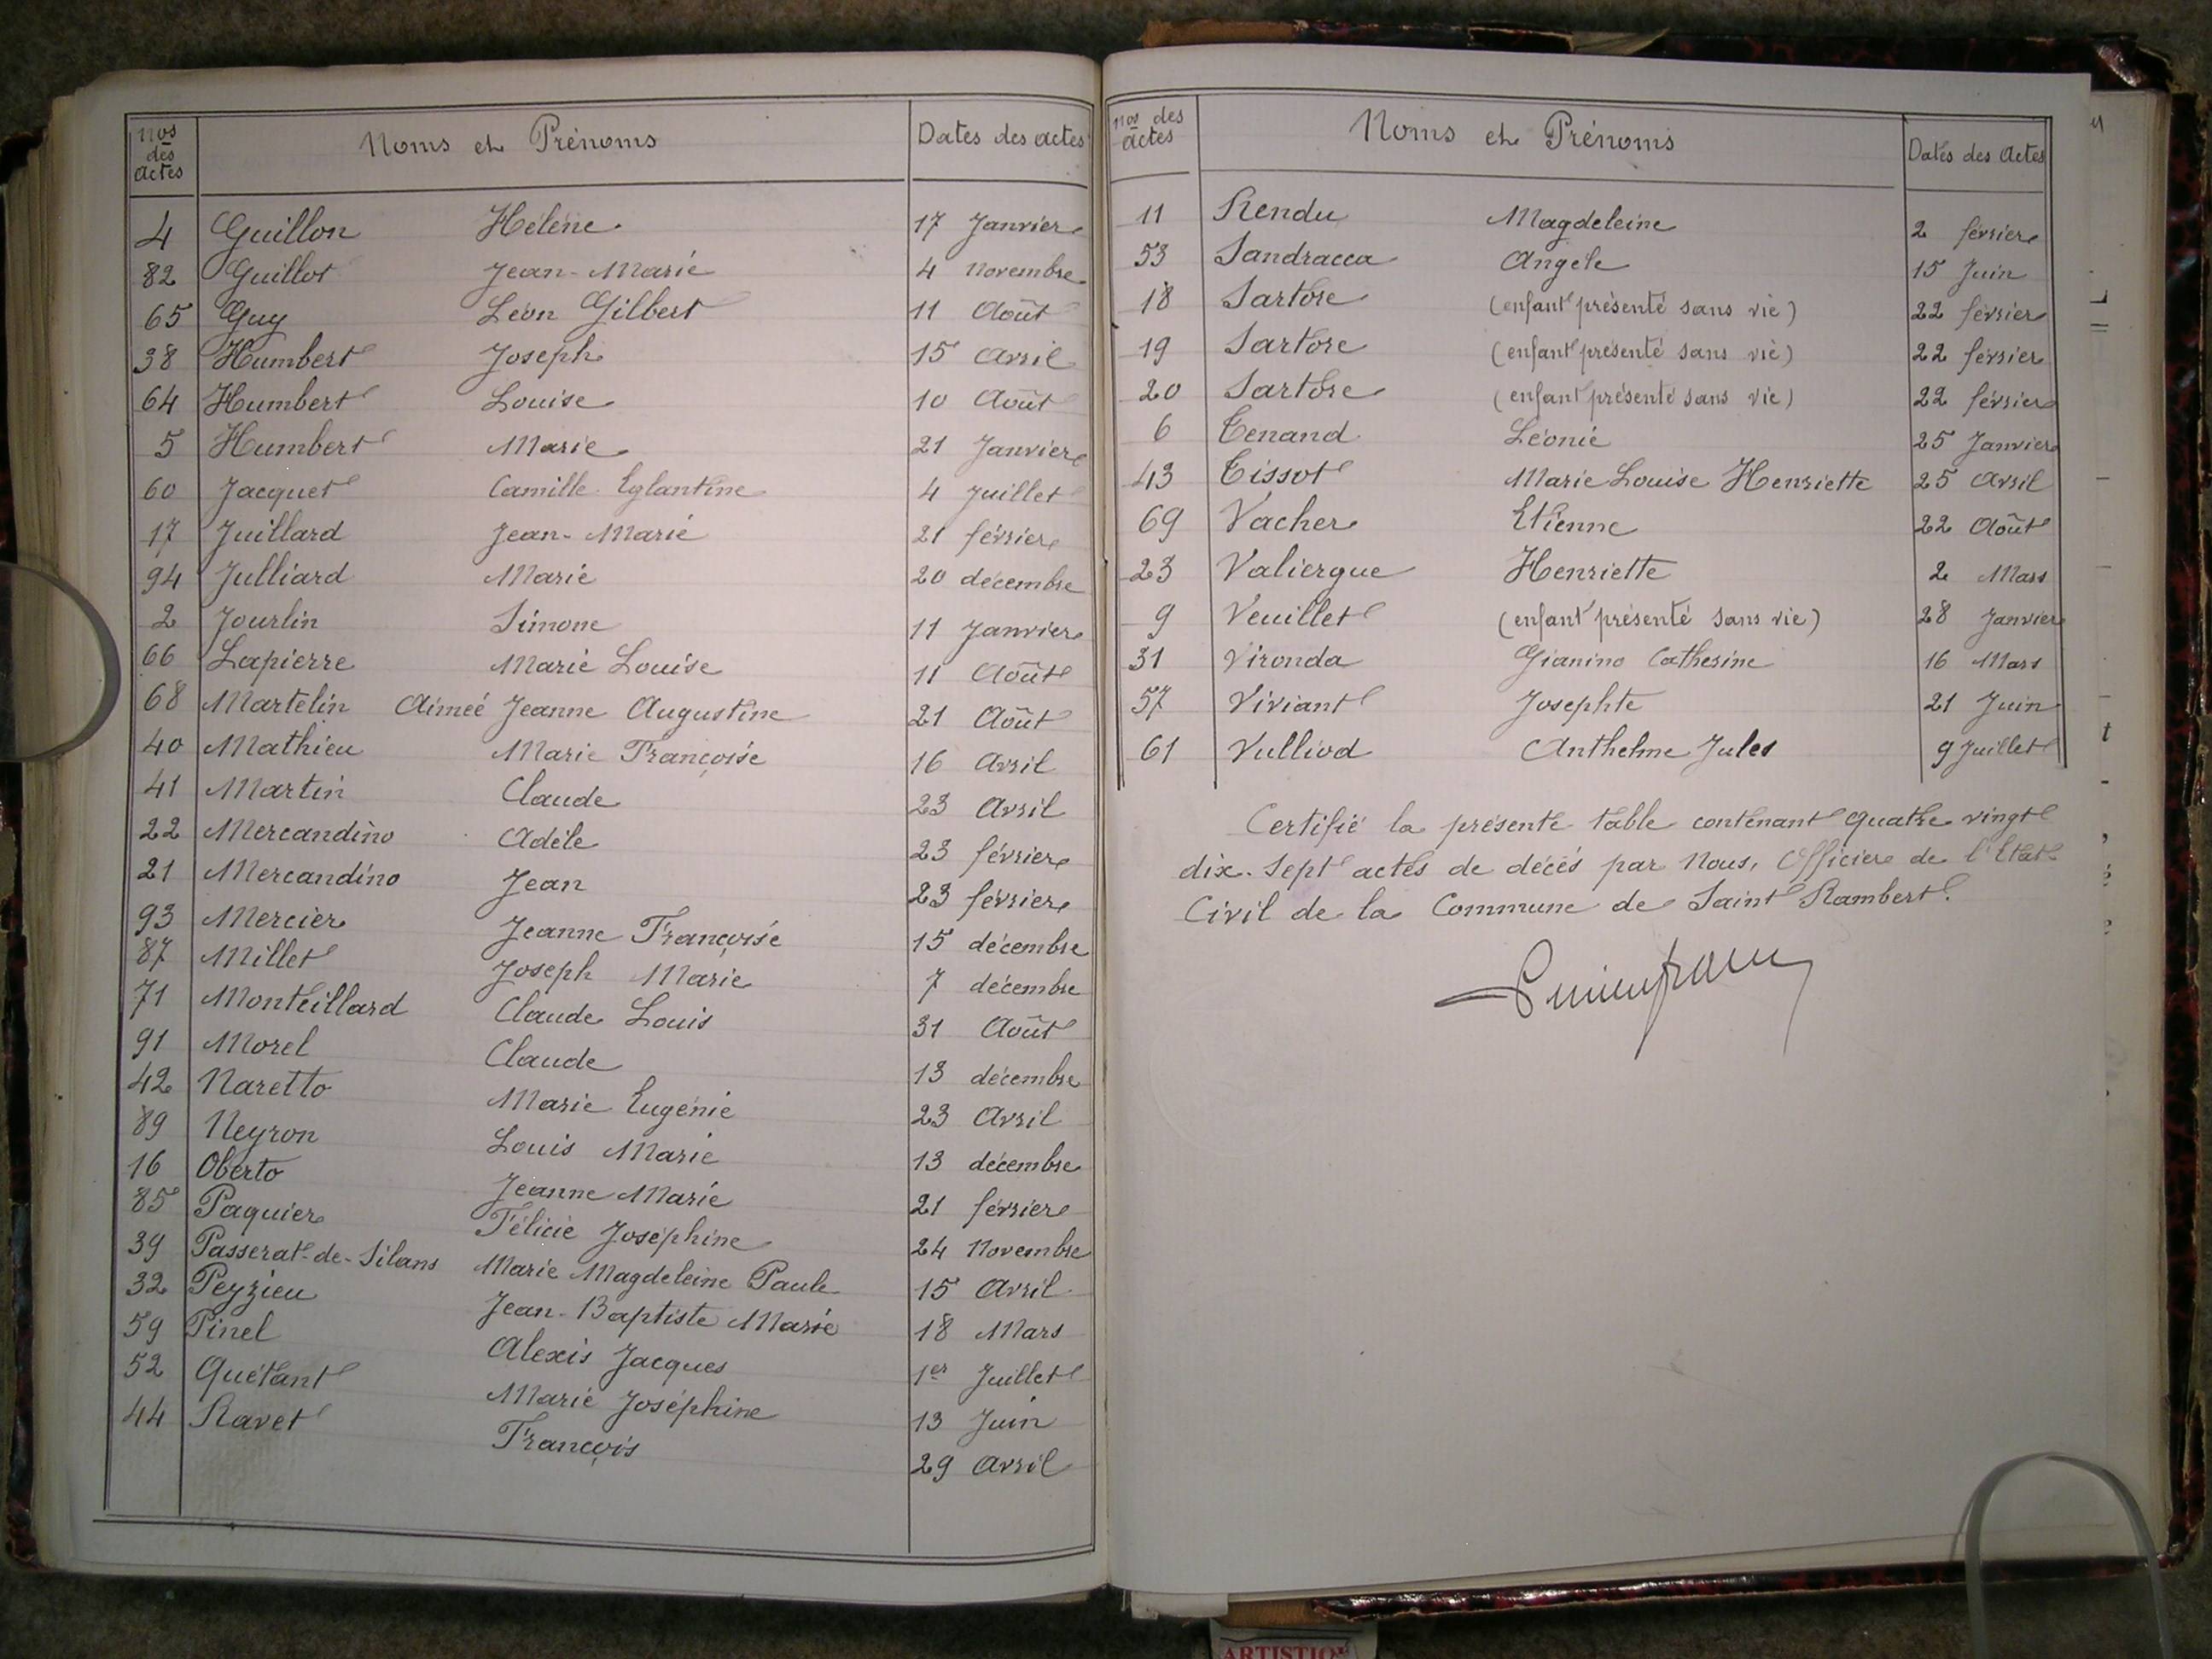 Nos des actes Noms et Prénoms Dates des actes
4 Guillon Hélène 17 Janvier
82 Guillot Jean-Marie 4 Novembre
65 Guy Léon Gilbert 11 Août
38 Humbert Joseph 15 Avril
64 Humbert Louise 10 Août
5 Humbert Marie 21 Janvier
60 Jacquet Camille Eglantine 4 Juillet
17 Juillard Jean-Marie 21 février
94 Julliard Marie 20 décembre
2 Jourlin Simone 11 Janvier
66 Lapierre Marie Louise 11 Août
68 Martelin Aimeé Jeanne Augustine 21 Août
40 Mathieu Marie Françoise 16 Avril
41 Martin Claude 23 Avril
22 Mercandino Adèle 23 février
21 Mercandino Jean 23 février
93 Mercier Jeanne Françoise 15 décembre
87 Millet Joseph Marie 7 décembre
71 Monteillard Claude Louis 31 Août
91 Morel Claude 13 décembre
42 Naretto Marie Eugénie 23 Avril
89 Neyron Louis Marie 13 décembre
16 Oberto Jeanne Marie 21 février
85 Paquier Félicie Joséphine 24 Novembre
39 Passerat-de-Silans Marie Magdeleine Paule 15 Avril
32 Peyzieu Jean-Baptiste Marie 18 Mars
59 Pinel Alexis Jacques 1er Juillet
52 Quétant Marie Joséphine 13 Juin
44 Ravet François 29 Avril
nos des actes Noms et Prénoms Dates des Actes
11 Rendu Magdeleine 2 février
53 Sandracca Angèle 15 Juin
18 Sartore (enfant présenté sans vie) 22 février
19 Sartore (enfant présenté sans vie) 22 février
20 Sartore (enfant présenté sans vie) 22 février
6 Tenand Léonie 25 Janvier
43 Tissot Marie Louise Henriette 25 Avril
69 Vacher Etienne 22 Août
23 Valiergue Henriette 2 Mars
9 Veuillet (enfant présenté sans vie) 28 Janvier
31 Vironda Gianino Catherine 16 Mars
57 Viviant Josephte 21 Juin
61 Vulliod Anthelme Jules 9 Juillet
Certifié la présente table contenant quatre vingt
dix-sept actes de décès par Nous, Officier de l'Etat
Civil de la Commune de Saint Rambert.
ARTISTIQU